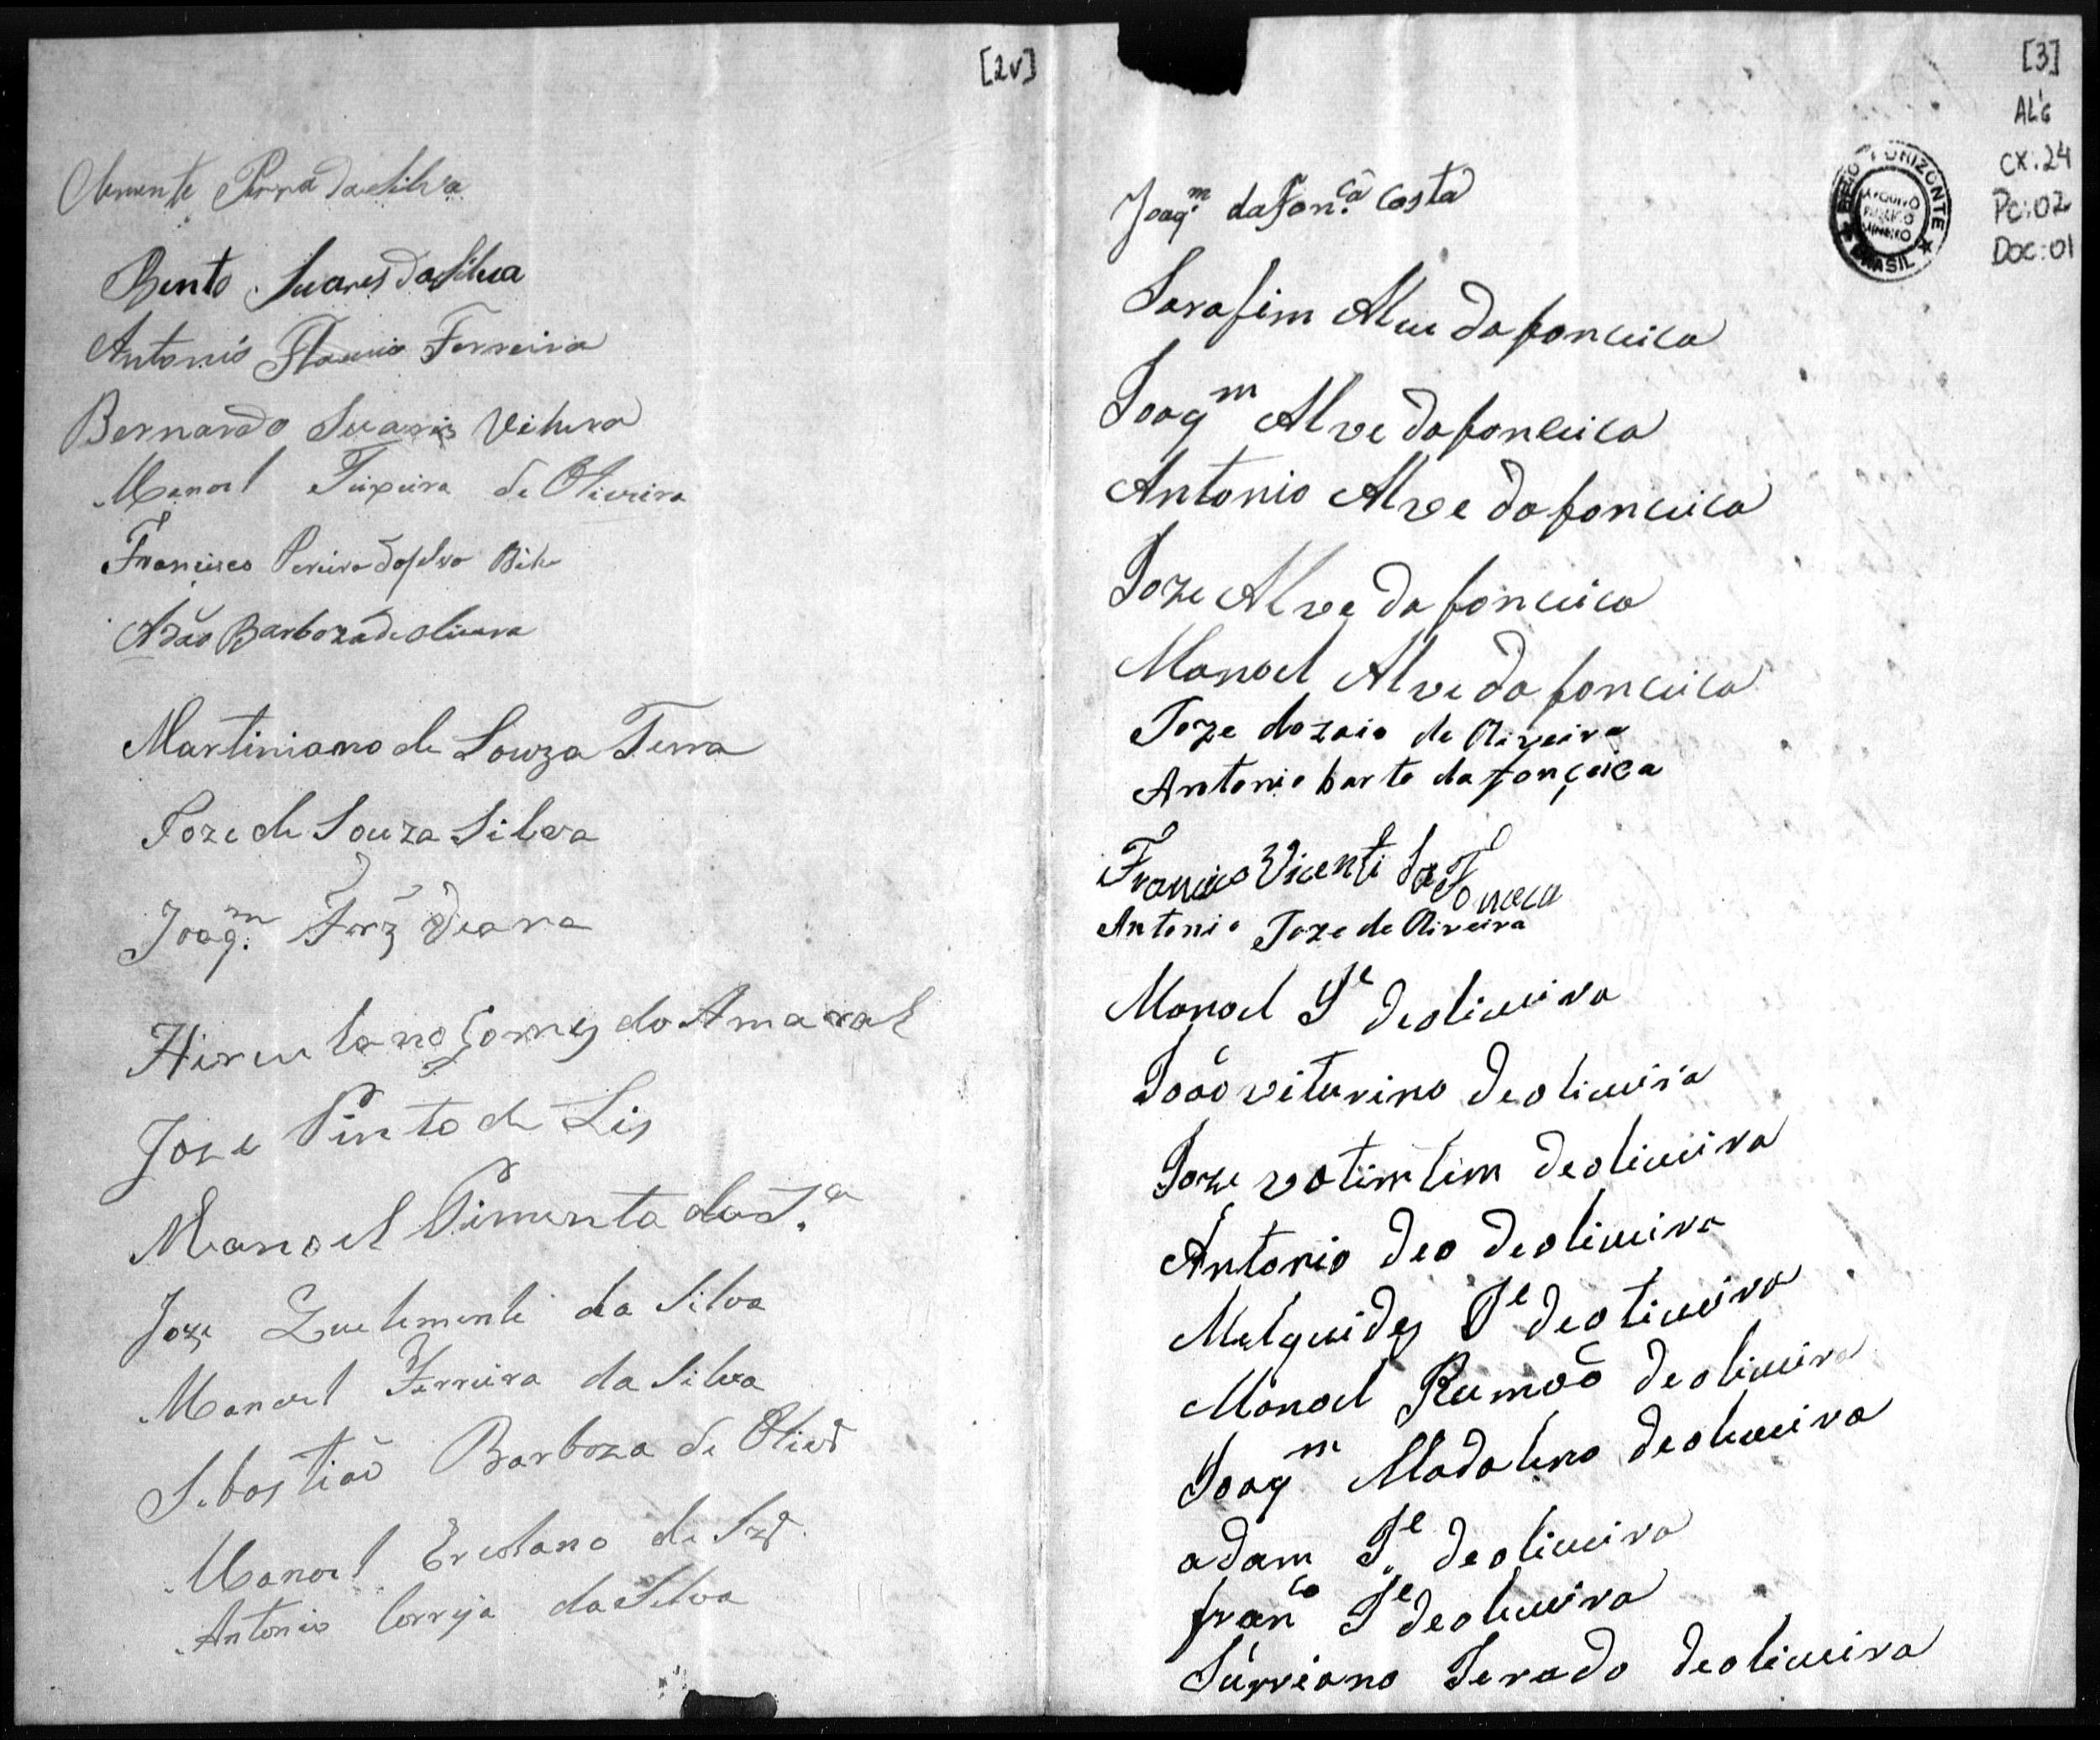 [2v]
Clemente Perra da Silva
Bento Suares da Silva
Antonio Flavio Ferreira
Bernardo Suaris Vihera
Manoel Teixeira de Oliveira
Francisco Pereira da
Adão Barboza de olivera
Martiniano de Souza Terra
Joze de Souza Silva
Joaqm. Frz Viana
Hirculano Gomes do Amaral
Jose Pinto de Lis
Manoel Pimenta da S.a
Joze da Silva
Manoel Ferreira da Silva
Sebastião Barboza de Olivra
Manoel Ercolano de Sza
Antonio Correja da Silva
[3]
ALG
CX: 24
Pc: 02
Doc: 01
BELO HORIZONTE
ARQUIVO
PUBLICO
MINEIRO
BRASIL
Joaqm. da Fon.ca Costa
Sarafim Alve da fonceica
Joaqm Alve da fonceica
Antonio Alve da fonceica
Joze Alve da fonceica
Manoel Alve da fonceica
Joze de Oliveira
Antonio da fonçeica
Francisco Vicenti da Fonceca
Antonio Joze de Oliveira
Manoel Je deoliveira
João viturino deoliveira
Joze votimtim deoliveira
Antonio deo deoliveira
Melquides Je deoliveira
Manoel Rumão deoliveira
Joaqm Madaleno deoliveira
adam Je deoliveira
franco Je deoliveira
deoliveira